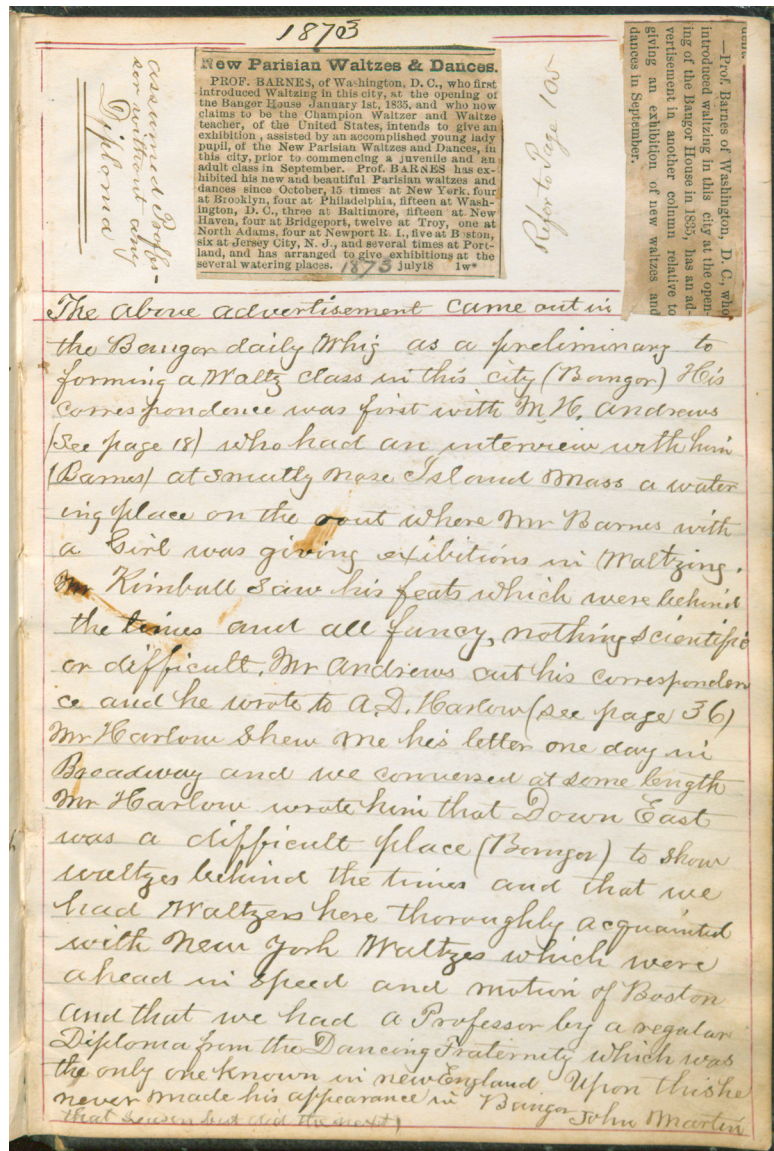 1873
assumed Profes-
sor without any
Diploma
New Parisian Waltzes & Dances.
PROF. BARNES, of Washington, D. C., who first
introduced Waltzing in this city, at the opening of
the Banger House January 1st, 1835, and who now
claims to be the Champion Waltzer and Waltze
teacher, of the United States, intends to give an
exhibition, assisted by an accomplished young lady
pupil, of the New Parisian Waltzes and Dances, in
this city, prior to commencing a juvenile and an
adult class in September. Prof. BARNES has ex-
hibited his new and beautiful Parisian waltzes and
dances since October, 15 times at New York, four
at Brooklyn, four at Philadelphia, fifteen at Wash-
ington, D. C., three at Baltimore, fifteen at New
Haven, four at Bridgeport, twelve at Troy, one at
North Adams, four at Newport R. I., five at Boston,
six at Jersey City, N. J., and several times at Port-
land, and has arranged to give exhibitions at the
several watering places. 1873 july18 1w*
Refer to Page 105
—Prof. Barnes of Washington, D. C., who
introduced waltzing in this city at the open-
ing of the Bangor House in 1835, has an ad-
vertisement in another column relative to
giving an exhibition of new waltzes and
dances in September.
The above advertisement came out in
the Bangor daily Whig as a preliminary to
forming a Waltz class in this city (Bangor) His
correspondence was first with M. H. Andrews
(See page 18) who had an interview with him
(Barnes) at Smutty nose Island Mass a water
ing place on the rout where Mr Barnes with
a Girl was giving exibitions in Waltzing.
Mr Kimball saw his feats which were behind
the times and all fancy, nothing scientific
or difficult. Mr Andrews cut his corresponden
ce and he wrote to A. D. Harlow (see page 36)
Mr Harlow shew me his letter one day in
Broadway and we conversed at some length
Mr Harlow wrote him that Down East
was a difficult place (Bangor) to show
waltzes behind the times and that we
had Waltzers here thoroughly acquainted
with New York Waltzes which were
ahead in speed and motion of Boston
and that we had a Professor by a regular
Diploma from the Dancing Fraternity which was
the only one known in new England Upon this he
never made his appearance in Bangor John Martin
that season but did the next)